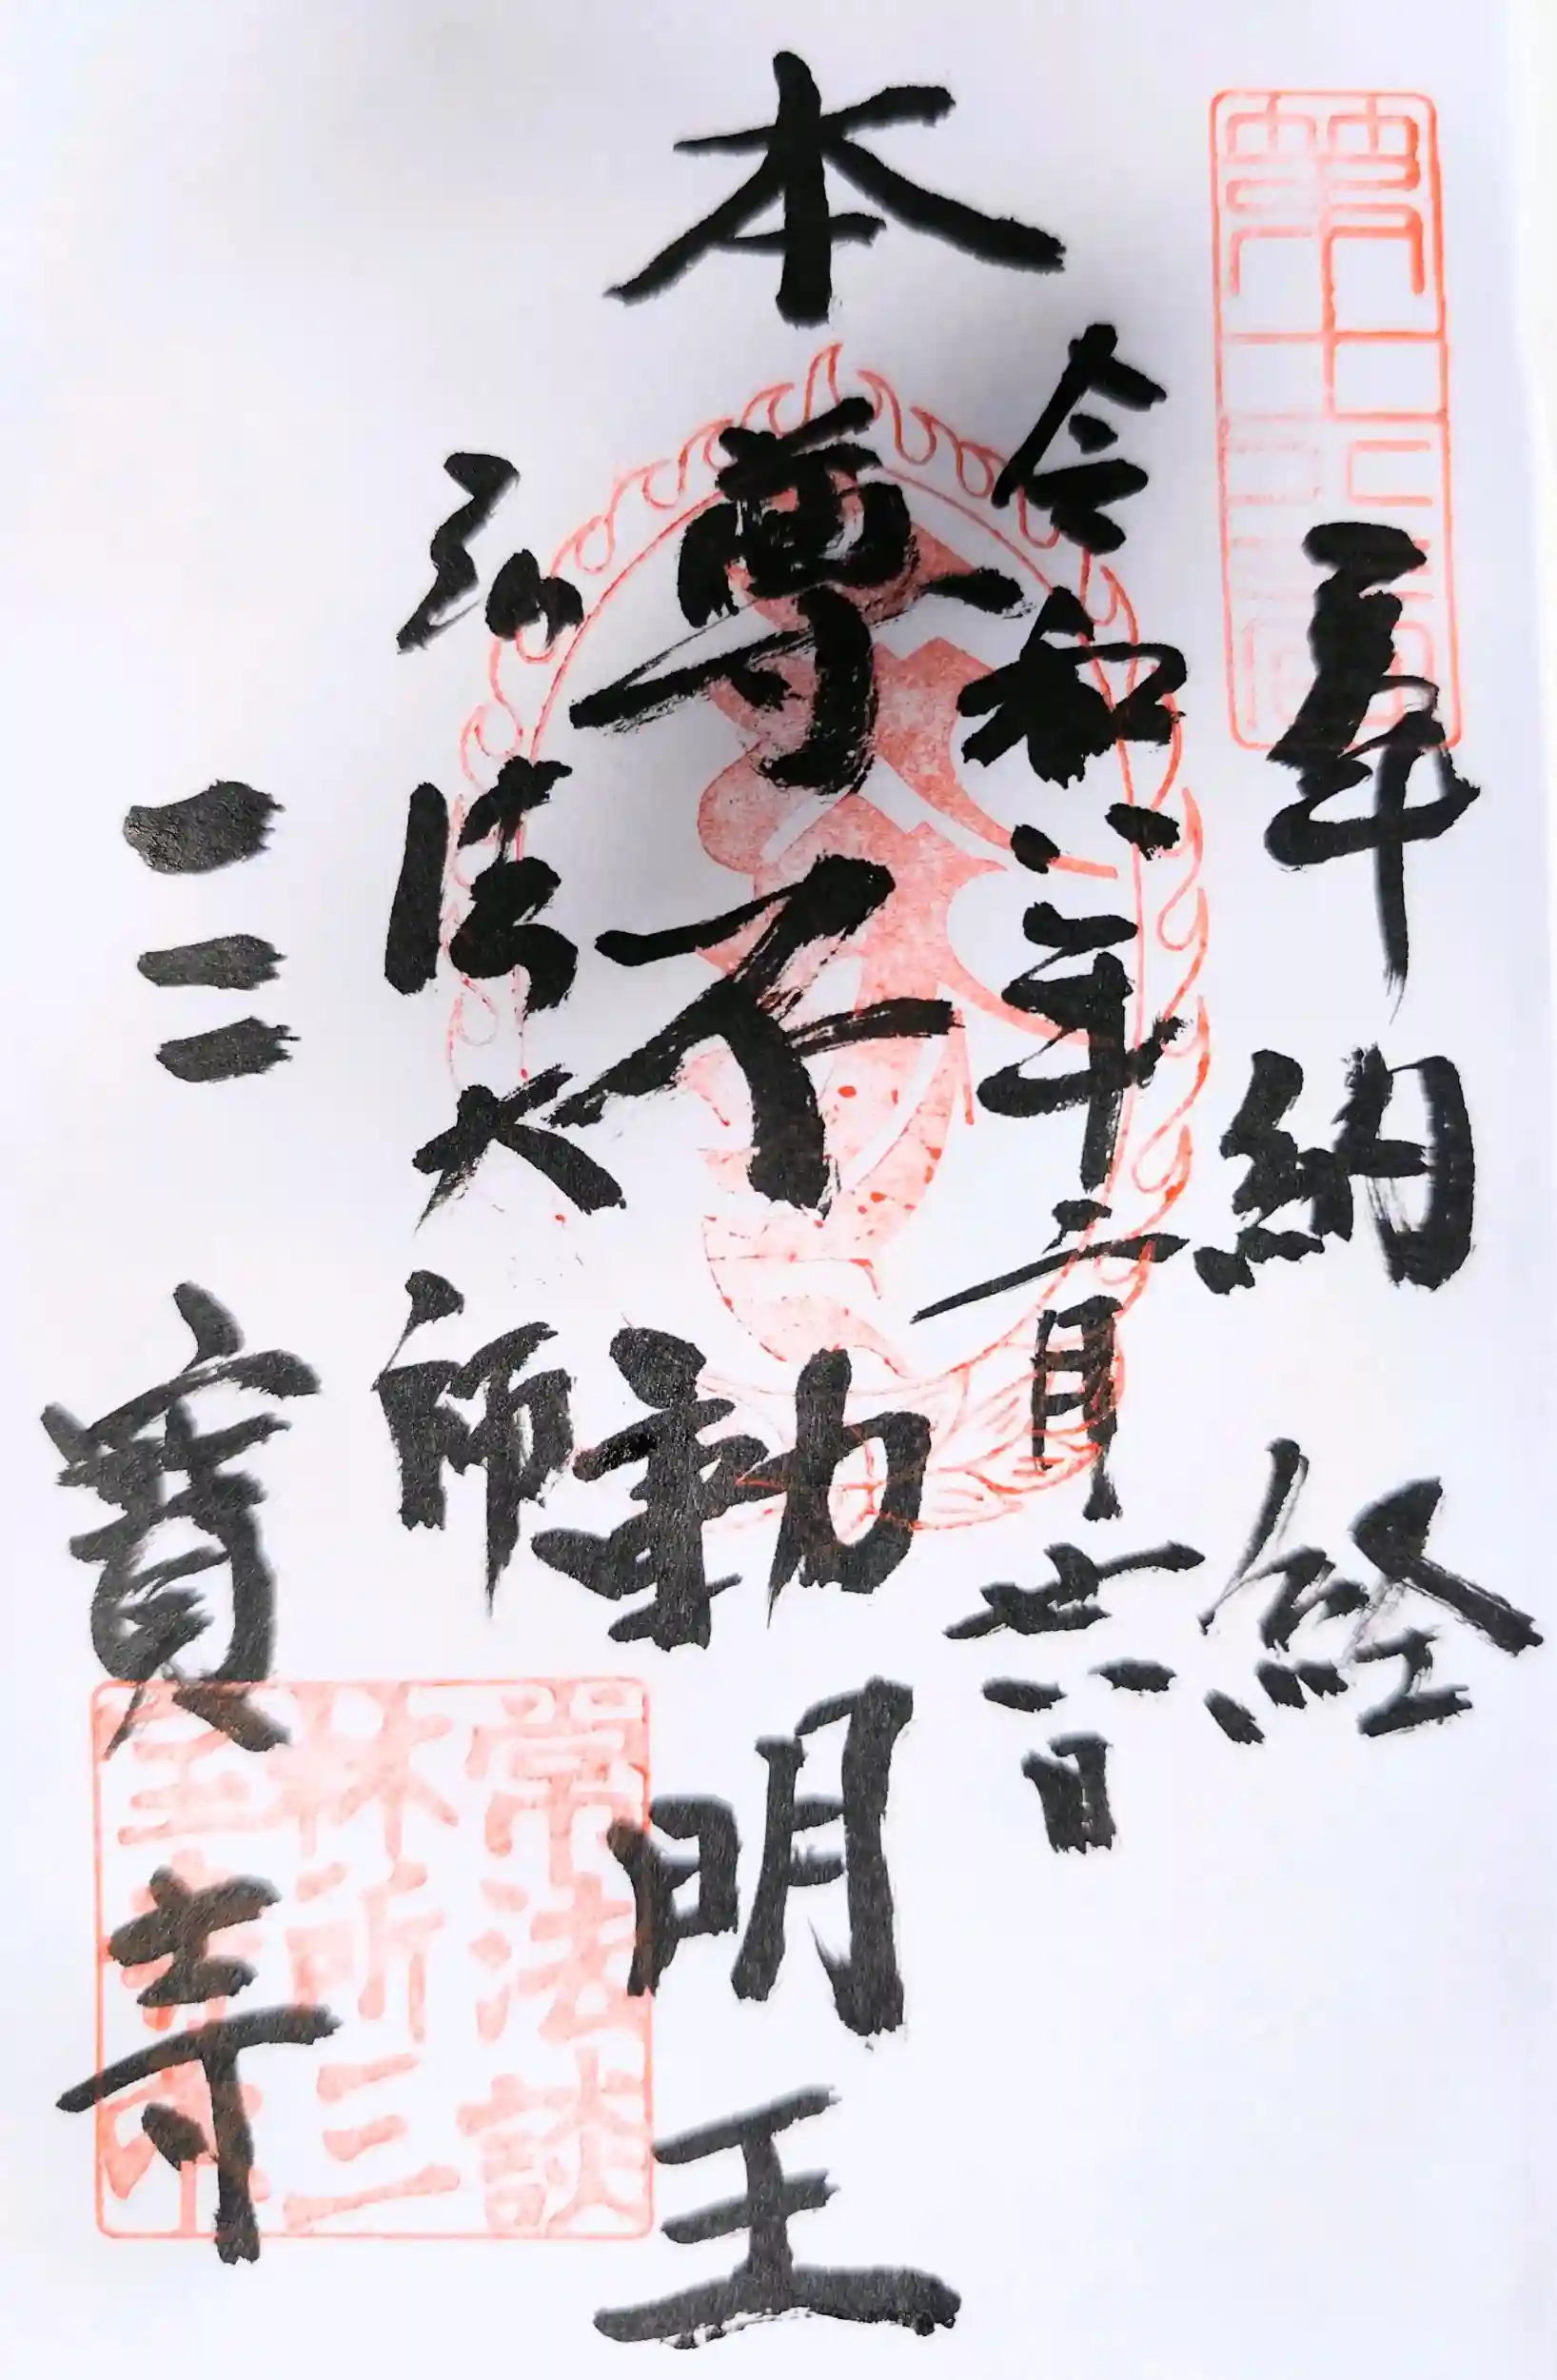 奉納経
令和八年二月廿八日
本尊不動明王
弘法大師
三寳寺
常法談
林所三
宝寺印